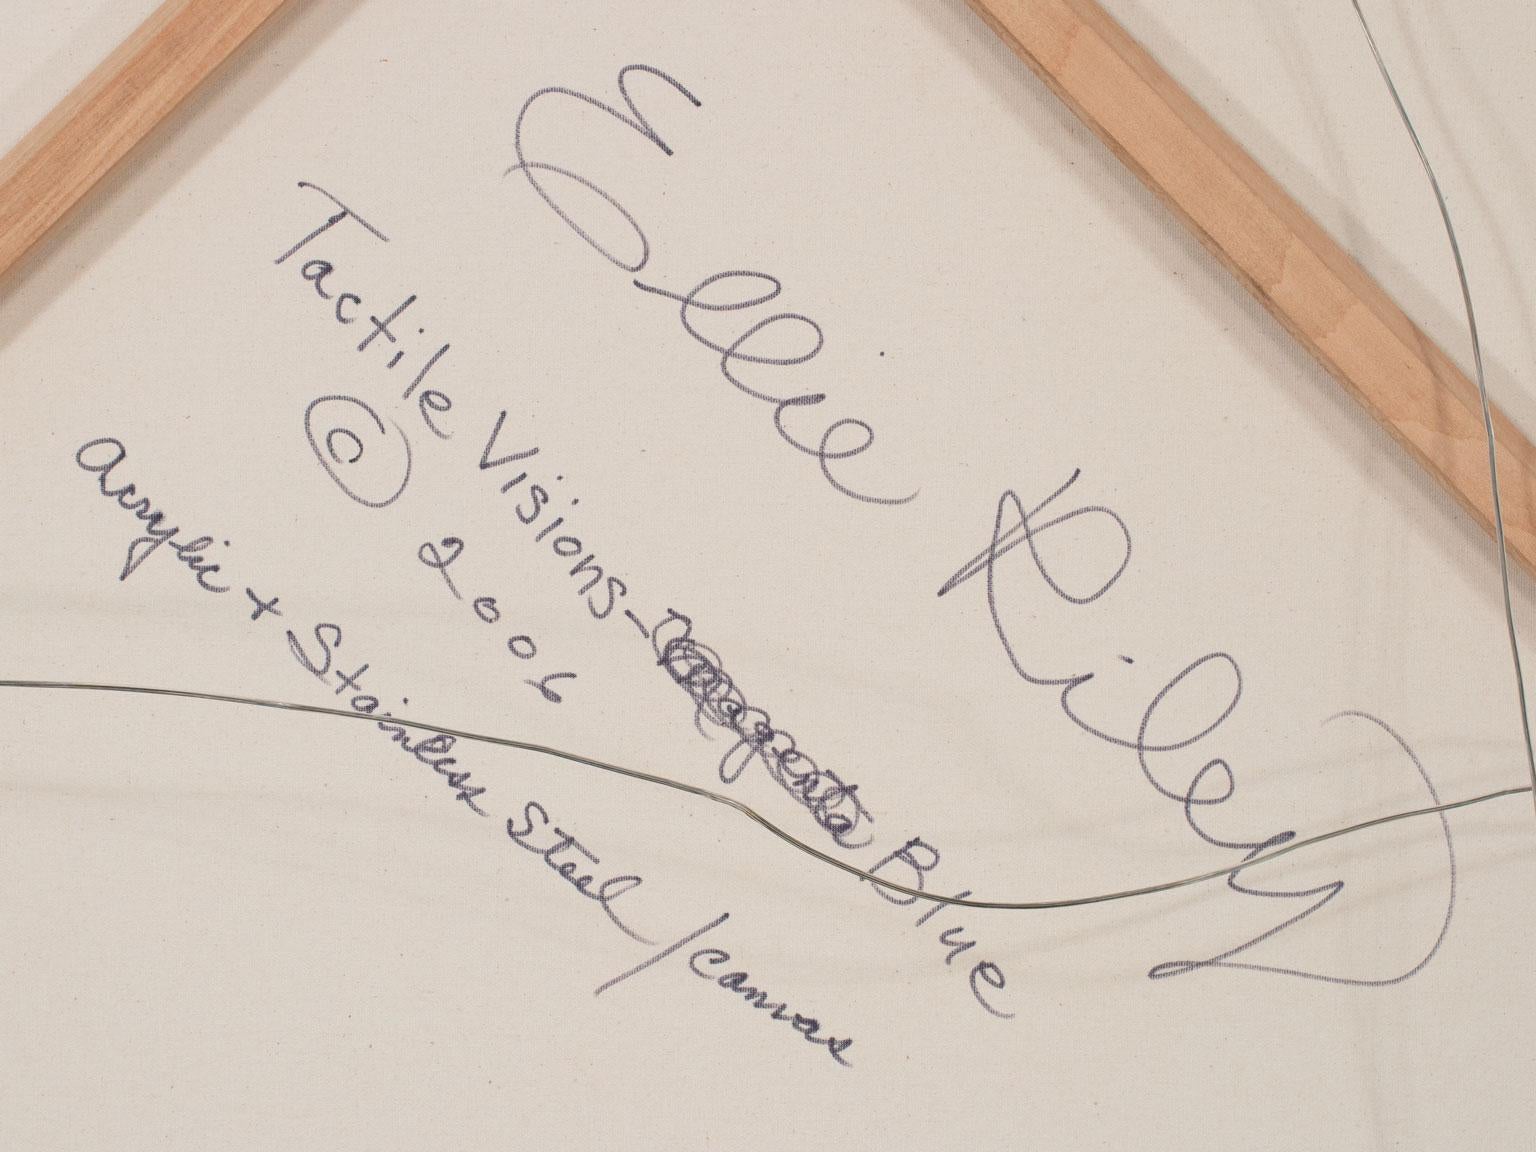 Ellie Riley
Tactile Visions - Magenta Blue
© 2006
acrylic + Stainless Steel / canvas